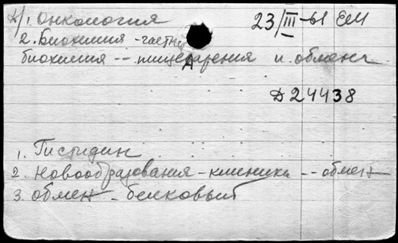 К/1. Онкология 23/III-61 ЕМ
2. Биохимия - частн
биохимия -- пищеварения и обмена
Д 24438
1. Гистидин
2. Новообразования - клиника -- обмен
3. обмен - белковый